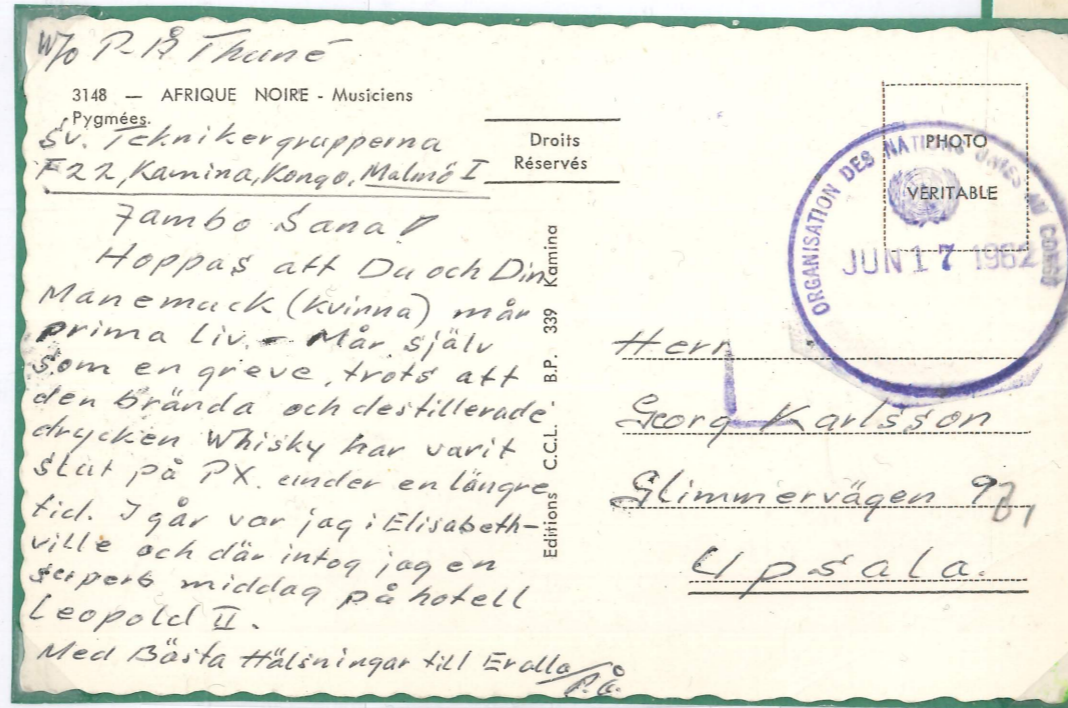 W/o P-Å Thuné
3148 — AFRIQUE NOIRE - Musiciens
Pygmées.
Sv. Teknikergrupperna
F22, Kamina, Kongo, Malmö I
Jambo Sana!
Hoppas att Du och Din
Manemuck (kvinna) mår
prima liv. - Mår själv
som en greve, trots att
den brända och destillerade
drycken Whisky har varit
slut på PX. under en längre
tid. I går var jag i Elisabeth-
ville och där intog jag en
superb middag på hotell
Leopold II.
Med Bästa Hälsningar till Er alla
P.Å.
Droits
Réservés
Editions C.C.L. B.P. 339 Kamina
PHOTO
VERITABLE
ORGANISATION DES NATIONS UNIES AU CONGO
JUN 17 1962
Herr
Georg Karlsson
Glimmervägen 9
Upsala.